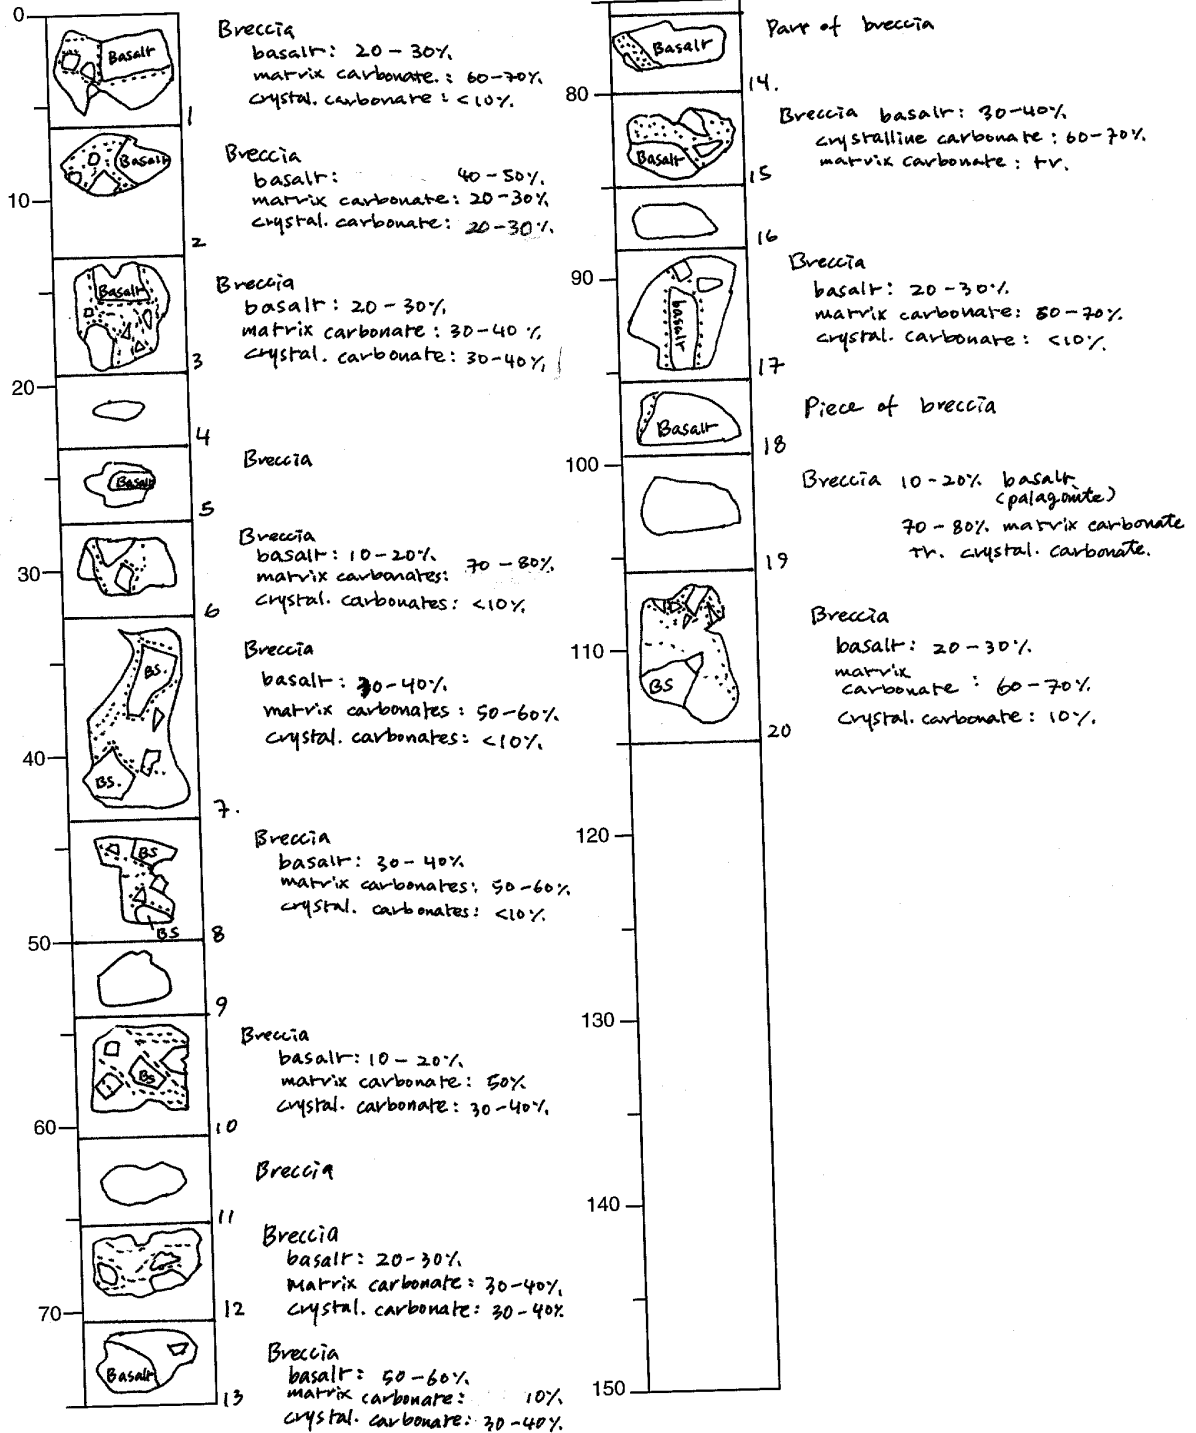 0
Basalt
1
Breccia
basalt: 20-30%
matrix carbonate.: 60-70%
crystal. carbonate: <10%.
Basalt
2
Breccia
basalt: 40-50%.
matrix carbonate: 20-30%
crystal. carbonate: 20-30%.
10
Basalt
3
Breccia
basalt: 20-30%
matrix carbonate: 30-40%
crystal. carbonate: 30-40%.
20
4
Basalt
5
Breccia
30
6
Breccia
basalt: 10-20%.
matrix carbonates: 70-80%.
crystal. carbonates: <10%.
BS.
BS.
7.
Breccia
basalt: 30-40%.
matrix carbonates: 50-60%.
crystal. carbonates: <10%.
40
BS
BS
8
Breccia
basalt: 30-40%.
matrix carbonates: 50-60%.
crystal. carbonates: <10%.
50
9
BS
10
Breccia
basalt: 10-20%.
matrix carbonate: 50%.
crystal. carbonate: 30-40%.
60
11
Breccia
12
Breccia
basalt: 20-30%.
matrix carbonate: 30-40%.
crystal. carbonate: 30-40%
70
Basalt
13
Breccia
basalt: 50-60%.
matrix carbonate: 10%.
crystal. carbonate: 30-40%.
Basalt
14.
Part of breccia
80
Basalt
15
Breccia basalt: 30-40%.
crystalline carbonate: 60-70%.
matrix carbonate: tr.
16
90
basalt
17
Breccia
basalt: 20-30%.
matrix carbonate: 60-70%.
crystal. carbonate: <10%.
Basalt
18
Piece of breccia
100
19
Breccia 10-20% basalt
(palagonite)
70-80% matrix carbonate
tr. crystal. carbonate.
110
BS
20
Breccia
basalt: 20-30%.
matrix
carbonate: 60-70%.
crystal. carbonate: 10%.
120
130
140
150